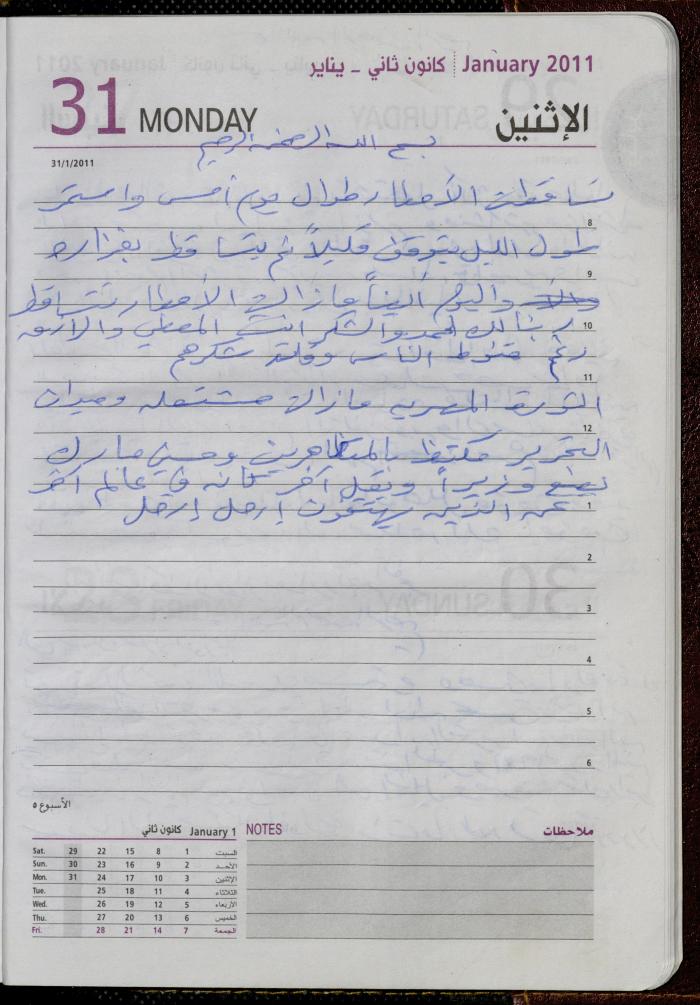 كانون ثاني ـ يناير January 2011
31 MONDAY الإثنين
31/1/2011
بسم الله الرحمن الرحيم
تساقطت الأمطار طوال يوم أمس واستمر
8
طول الليل يتوقف قليلاً ثم يتساقط بغزاره
9
واليوم أيضاً مازالت الأمطار تتساقط
ربنا لك الحمد والشكر انت المعطي والأزمه
10
رغم قنوط الناس وقلة شكرهم
11
الثورة المصريه مازالت مشتعله وميدان
12
التحرير مكتظ بالمتظاهرين وحسني مبارك
يضع وزيراً ويقيل آخر كأنه في عالم آخر
1
عن الذين يهتفون إرحل إرحل
2
3
4
5
6
الأسبوع ٥
January 1 كانون ثاني
Sat. 29 22 15 8 1 السبت
Sun. 30 23 16 9 2 الأحد
Mon. 31 24 17 10 3 الإثنين
Tue. 25 18 11 4 الثلاثاء
Wed. 26 19 12 5 الأربعاء
Thu. 27 20 13 6 الخميس
Fri. 28 21 14 7 الجمعة
NOTES ملاحظات